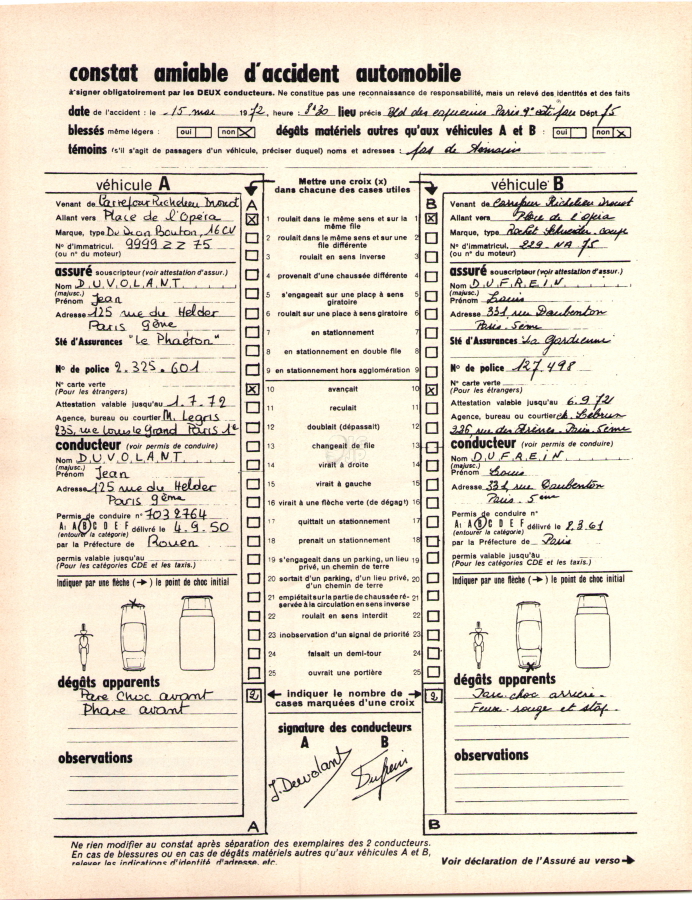 constat amiable d'accident automobile
à signer obligatoirement par les DEUX conducteurs. Ne constitue pas une reconnaissance de responsabilité, mais un relevé des identités et des faits
date de l'accident : le 15 mai 1972, heure : 8h30 lieu précis Bld des capucines Paris 9e Dépt 75
blessés même légers : oui non dégâts matériels autres qu'aux véhicules A et B : oui non
témoins (s'il s'agit de passagers d'un véhicule, préciser duquel) noms et adresses : pas de témoins
véhicule A
Venant de Carrefour Richelieu Drouot
Allant vers Place de l'Opéra
Marque, type De Dion Bouton, 16 CV
N° d'immatricul. 9999 ZZ 75
(ou n° du moteur)
assuré souscripteur (voir attestation d'assur.)
Nom D.U.V.O.L.A.N.T.
(majusc.)
Prénom Jean
Adresse 125 rue du Helder
Paris 9ème
Sté d'Assurances "Le Phaéton"
N° de police 2.325.601
N° carte verte
(Pour les étrangers)
Attestation valable jusqu'au 1.7.72
Agence, bureau ou courtier M. Legris
235, rue Louis le Grand Paris 1e
conducteur (voir permis de conduire)
Nom D.U.V.O.L.A.N.T.
(majusc.)
Prénom Jean
Adresse 125 rue du Helder
Paris 9ème
Permis de conduire n° 7032764
A1 A B C D E F délivré le 4.9.50
(entourer la catégorie)
par la Préfecture de Rouen
permis valable jusqu'au
(Pour les catégories CDE et les taxis.)
Indiquer par une flèche (→) le point de choc initial
dégâts apparents
Pare choc avant
Phare avant
observations
A
Mettre une croix (x)
dans chacune des cases utiles
A B
1 roulait dans le même sens et sur la même file 1
2 roulait dans le même sens et sur une file différente 2
3 roulait en sens inverse 3
4 provenait d'une chaussée différente 4
5 s'engageait sur une place à sens giratoire 5
6 roulait sur une place à sens giratoire 6
7 en stationnement 7
8 en stationnement en double file 8
9 en stationnement hors agglomération 9
10 avançait 10
11 reculait 11
12 doublait (dépassait) 12
13 changeait de file 13
14 virait à droite 14
15 virait à gauche 15
16 virait à une flèche verte (de dégagt) 16
17 quittait un stationnement 17
18 prenait un stationnement 18
19 s'engageait dans un parking, un lieu privé, un chemin de terre 19
20 sortait d'un parking, d'un lieu privé, d'un chemin de terre 20
21 empiétait sur la partie de chaussée réservée à la circulation en sens inverse 21
22 roulait en sens interdit 22
23 inobservation d'un signal de priorité 23
24 faisait un demi-tour 24
25 ouvrait une portière 25
2 ← indiquer le nombre de → 2
cases marquées d'une croix
signature des conducteurs
A B
J. Duvolant Dufrein
véhicule B
Venant de Carrefour Richelieu Drouot
Allant vers Place de l'Opéra
Marque, type Rochet Schneider coupé
N° d'immatricul. 229 NA 75
(ou n° du moteur)
assuré souscripteur (voir attestation d'assur.)
Nom D.U.F.R.E.I.N.
(majusc.)
Prénom Louis
Adresse 331 rue Daubenton
Paris 5eme
Sté d'Assurances La Gardienne
N° de police 127 498
N° carte verte
(Pour les étrangers)
Attestation valable jusqu'au 6.9.72
Agence, bureau ou courtier Lebrun
326, rue des Arènes Paris 5eme
conducteur (voir permis de conduire)
Nom D.U.F.R.E.I.N.
(majusc.)
Prénom Louis
Adresse 331 rue Daubenton
Paris 5eme
Permis de conduire n°
A1 A B C D E F délivré le 8.3.61
(entourer la catégorie)
par la Préfecture de Paris
permis valable jusqu'au
(Pour les catégories CDE et les taxis.)
Indiquer par une flèche (→) le point de choc initial
dégâts apparents
Pare choc arrière.
Feux rouge et stop.
observations
B
Ne rien modifier au constat après séparation des exemplaires des 2 conducteurs.
En cas de blessures ou en cas de dégâts matériels autres qu'aux véhicules A et B,
relever les indications d'identité, d'adresse, etc.
Voir déclaration de l'Assuré au verso →